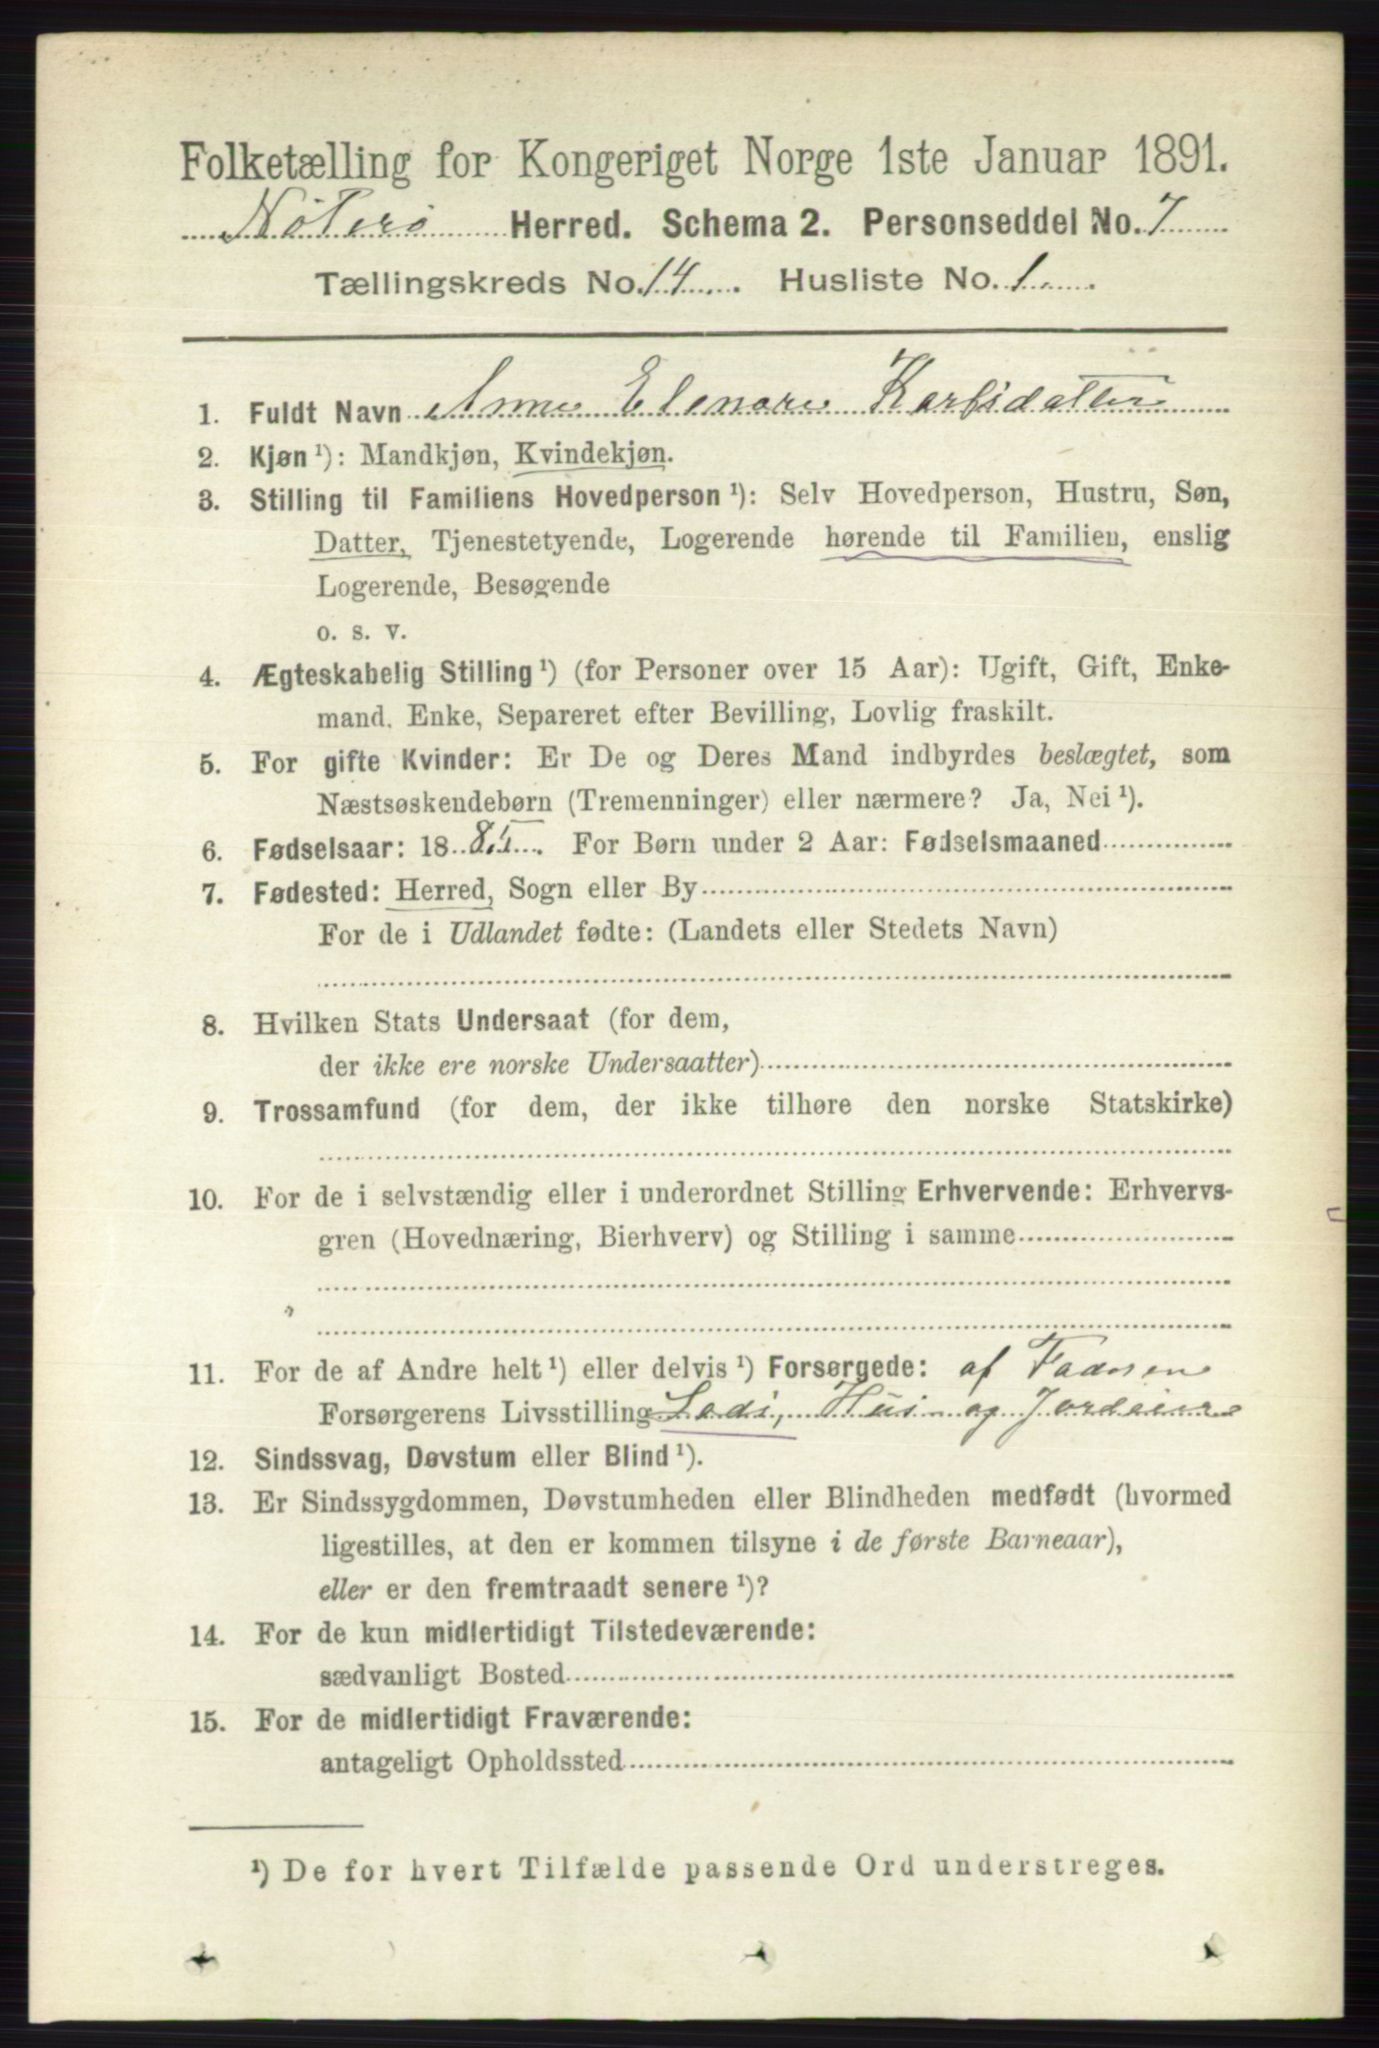 Folketælling for Kongeriget Norge 1ste Januar 1891.
Nøterø Herred. Schema 2. Personseddel No. 7
Tællingskreds No. 14 Husliste No. 1
1. Fuldt Navn Anne Elenore
2. Kjøn ¹): Mandkjøn, Kvindekjøn.
3. Stilling til Familiens Hovedperson ¹): Selv Hovedperson, Hustru, Søn,
Datter, Tjenestetyende, Logerende hørende til Familien, enslig
Logerende, Besøgende
o. s. v.
4. Ægteskabelig Stilling ¹) (for Personer over 15 Aar): Ugift, Gift, Enke-
mand, Enke, Separeret efter Bevilling, Lovlig fraskilt.
5. For gifte Kvinder: Er De og Deres Mand indbyrdes beslægtet, som
Næstsøskendebørn (Tremenninger) eller nærmere? Ja, Nei ¹).
6. Fødselsaar: 18 85. For Børn under 2 Aar: Fødselsmaaned
7. Fødested: Herred, Sogn eller By
For de i Udlandet fødte: (Landets eller Stedets Navn)
8. Hvilken Stats Undersaat (for dem,
der ikke ere norske Undersaatter)
9. Trossamfund (for dem, der ikke tilhøre den norske Statskirke)
10. For de i selvstændig eller i underordnet Stilling Erhvervende: Erhvervs-
gren (Hovednæring, Bierhverv) og Stilling i samme
11. For de af Andre helt ¹) eller delvis ¹) Forsørgede: af
Forsørgerens Livsstilling Lods, Hus- og Jordeier
12. Sindssvag, Døvstum eller Blind ¹).
13. Er Sindssygdommen, Døvstumheden eller Blindheden medfødt (hvormed
ligestilles, at den er kommen tilsyne i de første Barneaar),
eller er den fremtraadt senere ¹)?
14. For de kun midlertidigt Tilstedeværende:
sædvanligt Bosted
15. For de midlertidigt Fraværende:
antageligt Opholdssted
¹) De for hvert Tilfælde passende Ord understreges.